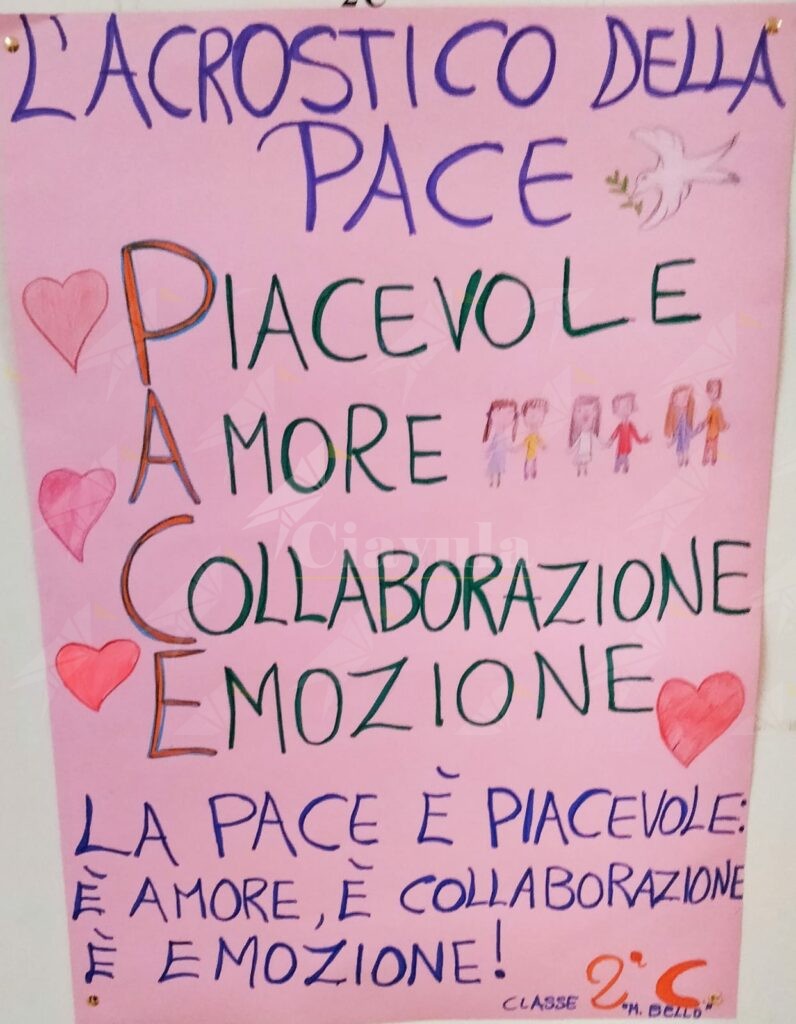 2C
L'ACROSTICO DELLA
PACE
PIACEVOLE
AMORE
Ciavula
COLLABORAZIONE
EMOZIONE
LA PACE È PIACEVOLE:
È AMORE, È COLLABORAZIONE
È EMOZIONE!
CLASSE 2ª C
"M. BELLO"